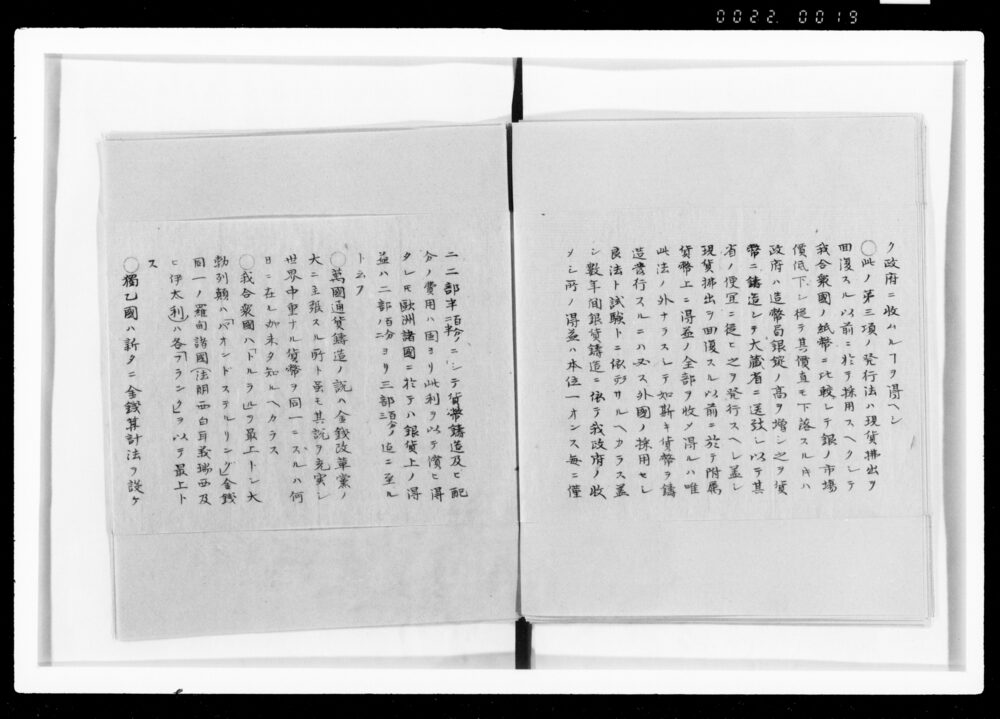 0022.0019
ク政府ニ收ムルヿヲ得ヘシ
〇此ノ第三項ノ発行法ハ現貨拂出ヲ
回復スル以前ニ於テ採用スヘクシテ
我合衆國ノ紙幣ニ比較シテ銀ノ市場
價低下シ從テ其價直モ下落スル𪜈ハ
政府ハ造幣局銀錠ノ高ヲ增シ之ヲ貨
幣ニ鑄造シテ大蔵省ニ送致シ以テ其
省ノ便冝ニ從ヒ之ヲ発行スヘシ蓋シ
現貨拂出ヲ回復スル以前ニ於テ附属
貨幣上ニ得益ノ全部ヲ收メ得ルハ唯
此法ノ外ナラスシテ如斯キ貨幣ヲ鑄
造発行スルニハ必ス外國ノ採用セシ
良法ト試験トニ依ラサルヘカラス蓋
シ数年间銀貨鑄造ニ依テ我政府ノ收
メシ所ノ得益ハ本位一オンス每ニ僅
ニ二部半百分ノニシテ貨幣鑄造及ヒ配
分ノ費用ハ固ヨリ此利ヲ以テ償ヒ得
タレ𪜈歐洲諸國ニ於テハ銀貨上ノ得
益ハ二部百分ノ二ヨリ三部百分ノ三迠ニ至ル
ト云フ
〇萬國通貨鑄造ノ説ハ金銭改革黨ノ
大ニ主張スル所ト虽モ其説ヲ充実シ
世界中重ナル貨幣ヲ同一ニスルハ何
日ニ在ル加未タ知ルヘカラス
〇我合衆國ハ「ドルラル」ヲ最上トシ大
勃列顛ハ「パオンドステルリング」金銭
同一ノ羅甸諸國(法朗西白耳義瑞西及
ヒ伊太利)ハ各「フランク」ヲ以テ最上ト
ス
〇獨乙國ハ新タニ金銭算計法ヲ設ケ